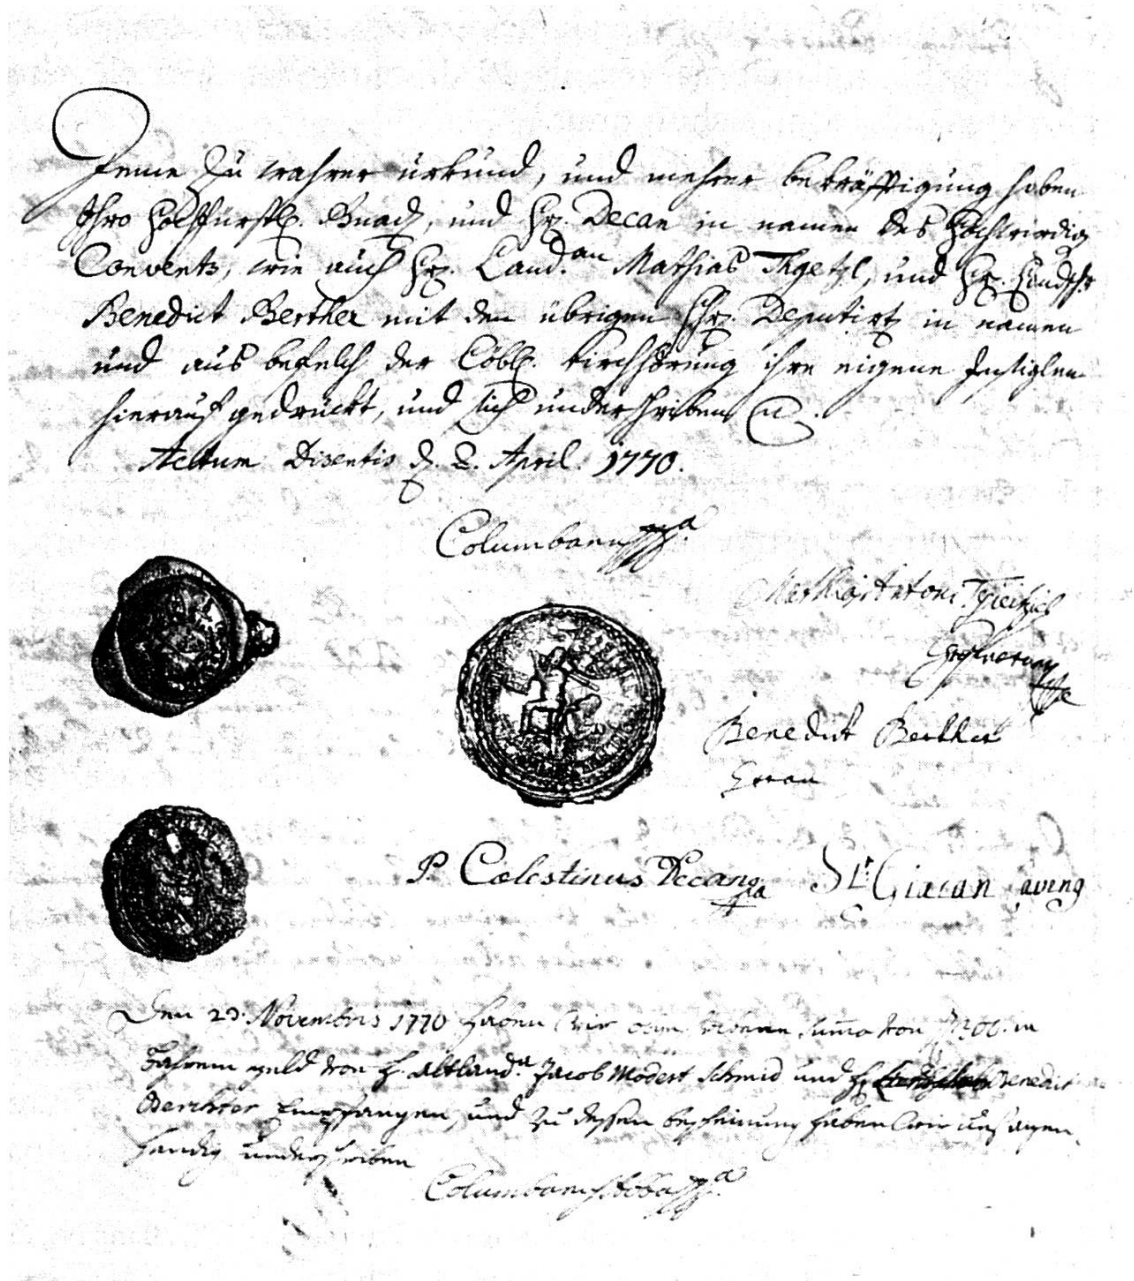 Deme Zu wahrer urkund, und mehrer bekräfftigung haben
Ihro hochfürstl. Gnad, und Hr. Decan in namen des hochwirdig
Convents, wie auch Hr. Land.an Mathias Thgetzl, und Hr.
Benedict Berther mit den übrigen Hr. Deputirt in namen
und aus befelch der Löbl. kirchhörung ihre eigene Insiglen
hierauf gedrückt, und sich underschriben
Actum Disentis d. 2. April. 1770.
Columbanus
Benedict Berther
P. Cœlestinus Decan
Giacan
Den 23. Novembris 1770 haben wir von
bahrem geld von H. altland.a Jacob Modest Schmid und Benedict
Berchter Empfangen, und zu dessen bescheinung haben wir uns aigen
händig underschriben
Columbanus Abbas